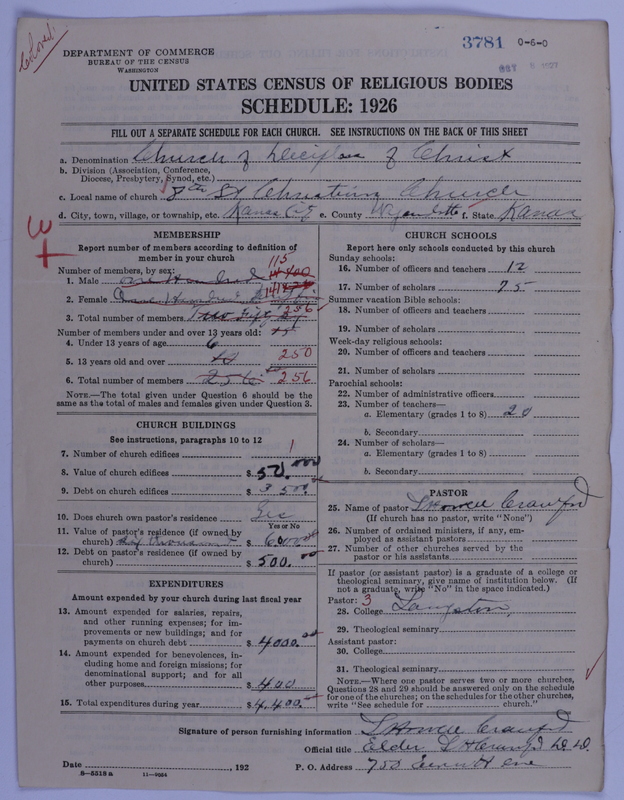 Chored
3781 0-6-0
OCT 5 1927
DEPARTMENT OF COMMERCE
BUREAU OF THE CENSUS
WASHINGTON
UNITED STATES CENSUS OF RELIGIOUS BODIES
SCHEDULE: 1926
FILL OUT A SEPARATE SCHEDULE FOR EACH CHURCH. SEE INSTRUCTIONS ON THE BACK OF THIS SHEET
a. Denomination Church of Deciples of Christ
b. Division (Association, Conference,
Diocese, Presbytery, Synod, etc.)
c. Local name of church 8th St Christian Church
d. City, town, village, or township, etc. Kansas City e. County Wyandotte f. State Kansas
MEMBERSHIP
Report number of members according to definition of
member in your church
Number of members, by sex:
1. Male one Hundred 115
2. Female One Hundred 141
3. Total number of members 256
Number of members under and over 13 years old:
4. Under 13 years of age 6
5. 13 years old and over 250
6. Total number of members 256 256
NOTE.—The total given under Question 6 should be the
same as the total of males and females given under Question 3.
CHURCH BUILDINGS
See instructions, paragraphs 10 to 12
7. Number of church edifices 1
8. Value of church edifices $
9. Debt on church edifices $ 3500.
10. Does church own pastor's residence Yes
Yes or No
11. Value of pastor's residence (if owned by
church) $ 6000
12. Debt on pastor's residence (if owned by
church) $ 500.00
EXPENDITURES
Amount expended by your church during last fiscal year
13. Amount expended for salaries, repairs,
and other running expenses; for im-
provements or new buildings; and for
payments on church debt $ 4000.00
14. Amount expended for benevolences, in-
cluding home and foreign missions; for
denominational support; and for all
other purposes $ 400
15. Total expenditures during year $ 4,400.
CHURCH SCHOOLS
Report here only schools conducted by this church
Sunday schools:
16. Number of officers and teachers 12
17. Number of scholars 75
Summer vacation Bible schools:
18. Number of officers and teachers
19. Number of scholars
Week-day religious schools:
20. Number of officers and teachers
21. Number of scholars
Parochial schools:
22. Number of administrative officers
23. Number of teachers—
a. Elementary (grades 1 to 8) 20
b. Secondary
24. Number of scholars—
a. Elementary (grades 1 to 8)
b. Secondary
PASTOR
25. Name of pastor Crawford
(If church has no pastor, write "None")
26. Number of ordained ministers, if any, em-
ployed as assistant pastors
27. Number of other churches served by the
pastor or his assistants
If pastor (or assistant pastor) is a graduate of a college or
theological seminary, give name of institution below. (If
not a graduate, write "No" in the space indicated.)
Pastor: 3
28. College Langston
29. Theological seminary
Assistant pastor:
30. College
31. Theological seminary
NOTE.—Where one pastor serves two or more churches,
Questions 28 and 29 should be answered only on the schedule
for one of the churches; on the schedules for the other churches,
write "See schedule for church."
Signature of person furnishing information Crawford
Official title Elder Crawford D.D.
Date , 192 P. O. Address 750 ave
8—5518 a 11—9054